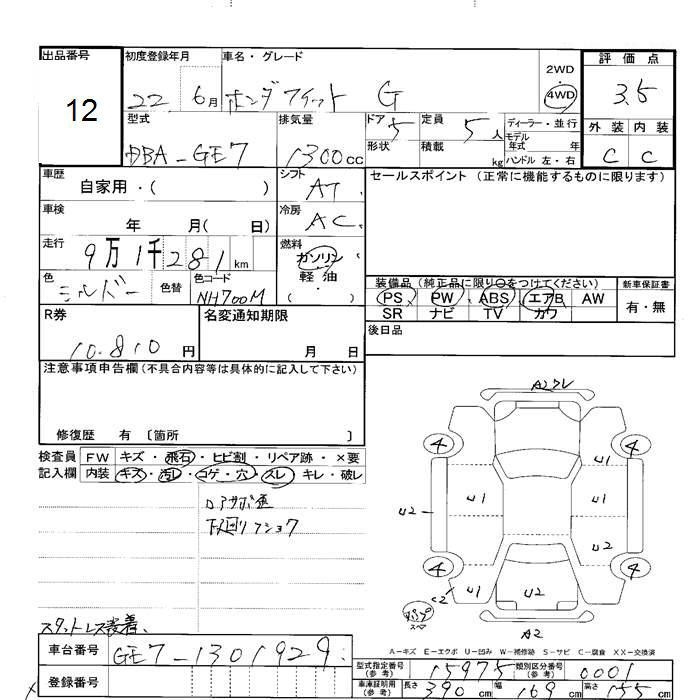 出品番号 初度登録年月 車名・グレード 評価点
12
22 6月 ホンダフィット G 2WD 4WD 3.5
型式 排気量 ドア 5 定員 5人 ディーラー・並行 外装 内装
モデル年式 年
DBA-GE7 1300cc 形状 積載 kg ハンドル 左・右 C C
車歴 自家用・( ) シフト AT セールスポイント(正常に機能するものに限ります)
車検 年 月( 日) 冷房 AC
走行 9万1千281km 燃料 ガソリン 軽・油 ( )
色 シルバー 色替 色コード NH700M
装備品(純正品に限り○をつけてください) 新車保証書
PS PW ABS エアB AW 有・無
SR ナビ TV カワ
R券 10.810円 名変通知期限 月 日 後日品
注意事項申告欄(不具合内容等は具体的に記入して下さい)
修復歴 有 〔箇所 〕
検査員記入欄 FW キズ・飛石・ヒビ割・リペア跡・×要
内装 キズ・汚れ・コゲ・穴・スレ・キレ・破レ
下廻リ
スタットレス装着、
A2
4 4
U1
U1 U1
U2 U2
4 4
U1 U2 U1
A2
A-キズ E-エクボ U-凹み W-補修跡 S-サビ C-腐食 XX-交換済
車台番号 GE7-1301929
型式指定番号(参考) 15975 類別区分番号(参考) 0001
登録番号 車庫証明用(参考) 長さ 390cm 幅 169cm 高さ 155cm